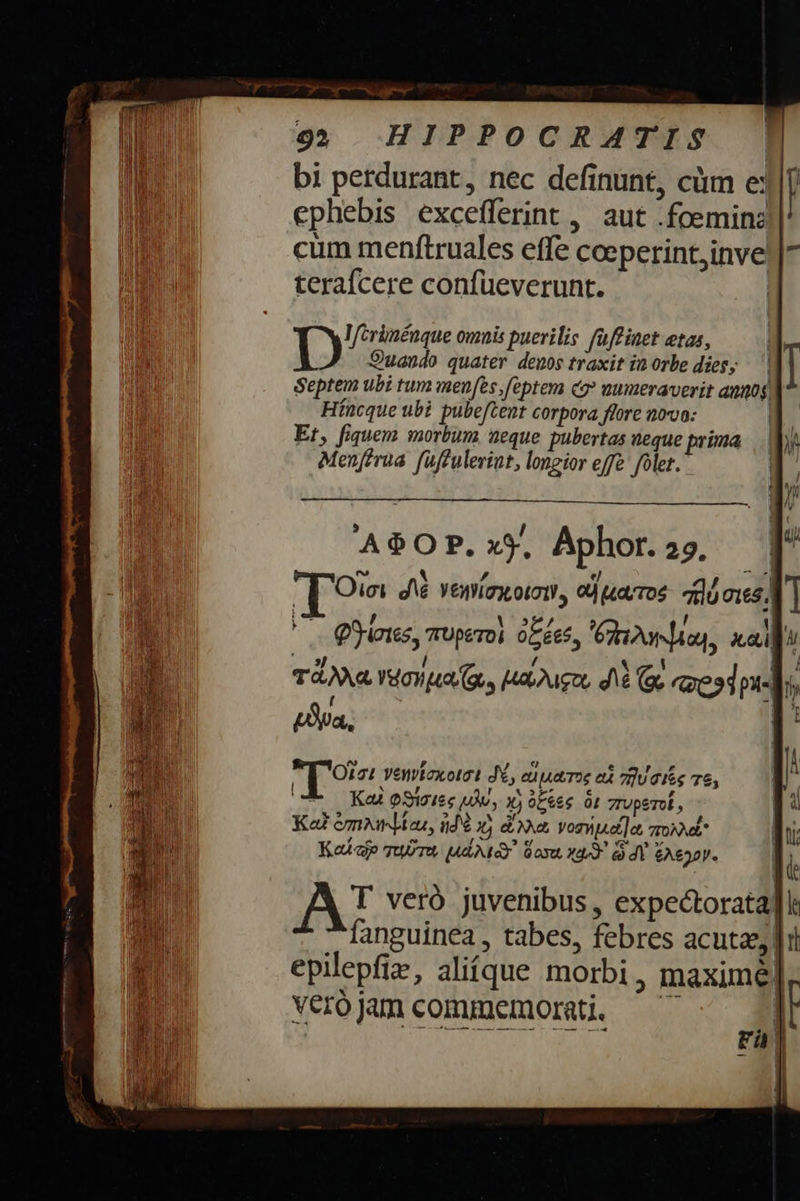 92 HIPPOCRATIS
bi perdurant, nec definunt, cùm e
ephebis exceſſerint, aut fœmina
cùm menſtruales eſſe cœperint, inve
teraſcere conſueverunt.
DIſcriménque omnis puerilis ſuſtinet ætas,
Quando quater denos traxit in orbe dies;
Septem ubi tum menſes, ſeptem & numeraverit annos
Híncque ubi pubeſcent corpora flore novo:
Et, ſiquem morbum neque pubertas neque prima
Menſtrua ſuſtulerint, longior eſſe ſolet.
ἈΦΟΡ. κθ'. Aphor. 29.
ΤΟῖσι δὲ νεηνίσκοισιν, αἵματος πτύσιες,
φθίσιες, πυρετοὶ ὀξέες, ἐπιληψίαι, καὶ
τἄλλα νυσήματα, μάλιστα δὲ τὰ προειρη-
μένα.
ΤΟῖσι νεηνίσκοισι δέ, αἵματος αἱ πτύσιές τε,
Καὶ φθίσιες μὲν, καὶ ὀξέες οἱ πυρετοί,
Καὶ ἐπιληψίαι, ἠδὲ καὶ ἄλλα νοσήματα πολλά·
Καὶ γὰρ ταῦτα μάλισθ' ὅσα καθ' ὧδ' ἔλεγον.
AT verò juvenibus, expectorata
ſanguinea, tabes, febres acutæ,
epilepſiæ, aliíque morbi, maximè
verò jam commemorati.
Fit